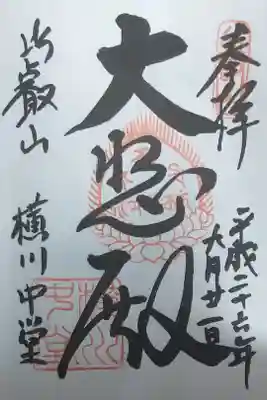 奉拝
平成二十六年
六月廿一日
大悲殿
比叡山
横川中堂